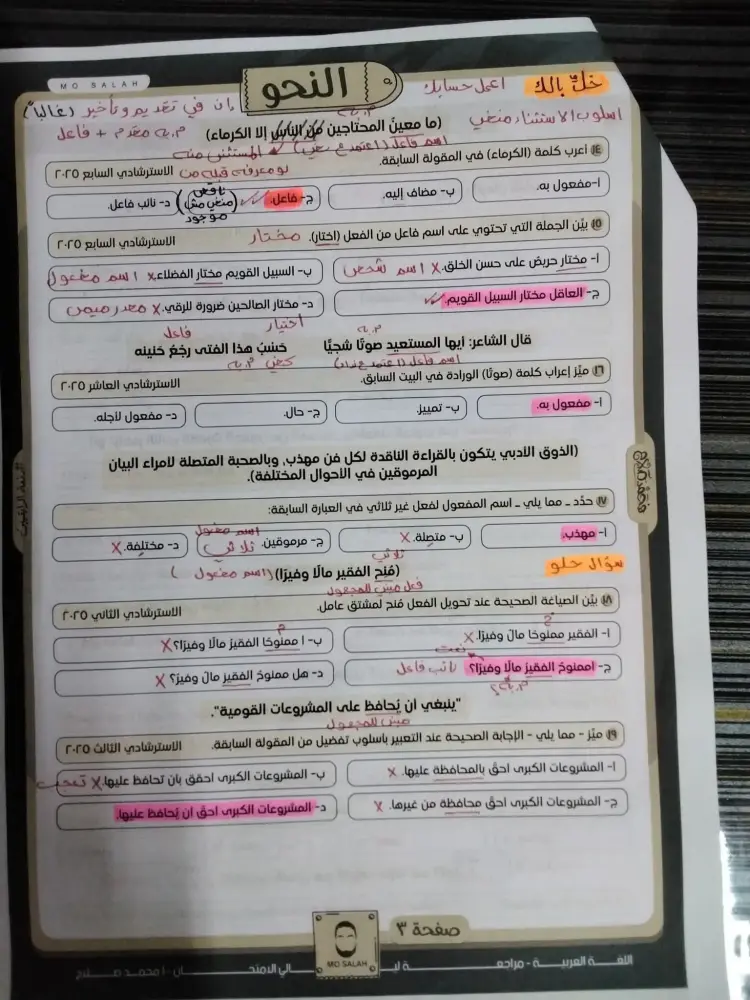 MO SALAH
النحو
خلّ بالك
اعمل حسابك
إن في تقديم وتأخير (غالبا)
اسلوب الاستثناء منفي
م. به
م. به مقدم + فاعل
(ما معين المحتاجين من الناس إلا الكرماء)
اسم فاعل (اعتمد ع نفي)
المستثنى منه
١٤ أعرب كلمة (الكرماء) في المقولة السابقة.
لو معرفة قبله من
الاسترشادي السابع ٢٠٢٥
أ- مفعول به.
ب- مضاف إليه.
ج- فاعل.
ناقص منفي مش موجود
د- نائب فاعل.
١٥ بيّن الجملة التي تحتوي على اسم فاعل من الفعل (اختار).
مختار
الاسترشادي السابع ٢٠٢٥
أ- مختار حريض على حسن الخلق. x اسم شخص
ب- السبيل القويم مختار الفضلاء. x اسم مفعول
ج- العاقل مختار السبيل القويم.
د- مختار الصالحين ضرورة للرقي. x مصدر ميمي
اختيار
م. به
فاعل
قال الشاعر: أيها المستعيد صوتًا شجيًا
حَسْبُ هذا الفتى رجْعُ حَنينه
اسم فاعل (اعتمد ع نداء)
يكفي م. به
١٦ ميّز إعراب كلمة (صوتًا) الورادة في البيت السابق.
الاسترشادي العاشر ٢٠٢٥
أ- مفعول به.
ب- تمييز.
ج- حال.
د- مفعول لأجله.
(الذوق الأدبي يتكون بالقراءة الناقدة لكل فن مهذب، وبالصحبة المتصلة لأمراء البيان
المرموقين في الأحوال المختلفة).
١٧ حدّد ـ مما يلي ـ اسم المفعول لفعل غير ثلاثي في العبارة السابقة:
أ- مهذب.
ب- متصلة. x
اسم مفعول
ج- مرموقين. ثلاثي
د- مختلفة. x
سؤال حلو
ثلاثي
(مُنِح الفقير مالًا وفيرًا) (اسم مفعول)
فعل مبني للمجهول
١٨ بيّن الصياغة الصحيحة عند تحويل الفعل مُنح لمشتق عامل.
الاسترشادي الثاني ٢٠٢٥
أ- الفقير ممنوحًا مال وفيرًا. x
ب- أ ممنوحًا الفقيرُ مالًا وفيرًا؟ x
ج- أممنوحٌ الفقيرُ مالًا وفيرًا؟ نائب فاعل
نعت
د- هل ممنوحٌ الفقيرُ مال وفيرٌ؟ x
"ينبغي أن يُحافظ على المشروعات القومية".
مبني للمجهول
١٩ ميّز - مما يلي - الإجابة الصحيحة عند التعبير بأسلوب تفضيل من المقولة السابقة.
الاسترشادي الثالث ٢٠٢٥
أ- المشروعات الكبرى أحقُ بالمحافظة عليها. x
ب- المشروعات الكبرى أحقق بأن تحافظ عليها. x تعجب
ج- المشروعات الكبرى أحقُ محافظة من غيرها. x
د- المشروعات الكبرى أحقُ أن يُحافظ عليها.
صفحة ٣
MO SALAH